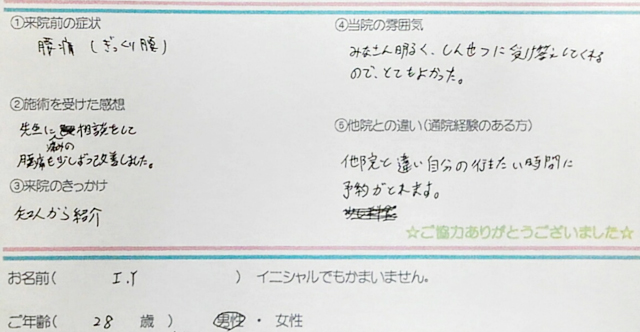 ①来院前の症状
腰痛 (ぎっくり腰)
②施術を受けた感想
先生に相談をして
痛みの
腰痛も少しずつ改善しました。
③来院のきっかけ
知人から紹介
④当院の雰囲気
みなさん明るく、しんせつに受け答えしてくれる
ので、とてもよかった。
⑤他院との違い(通院経験のある方)
他院と違い自分の行きたい時間に
予約がとれます。
☆ご協力ありがとうございました☆
お名前( I.Y ) イニシャルでもかまいません。
ご年齢( 28 歳 ) 男性 ・ 女性